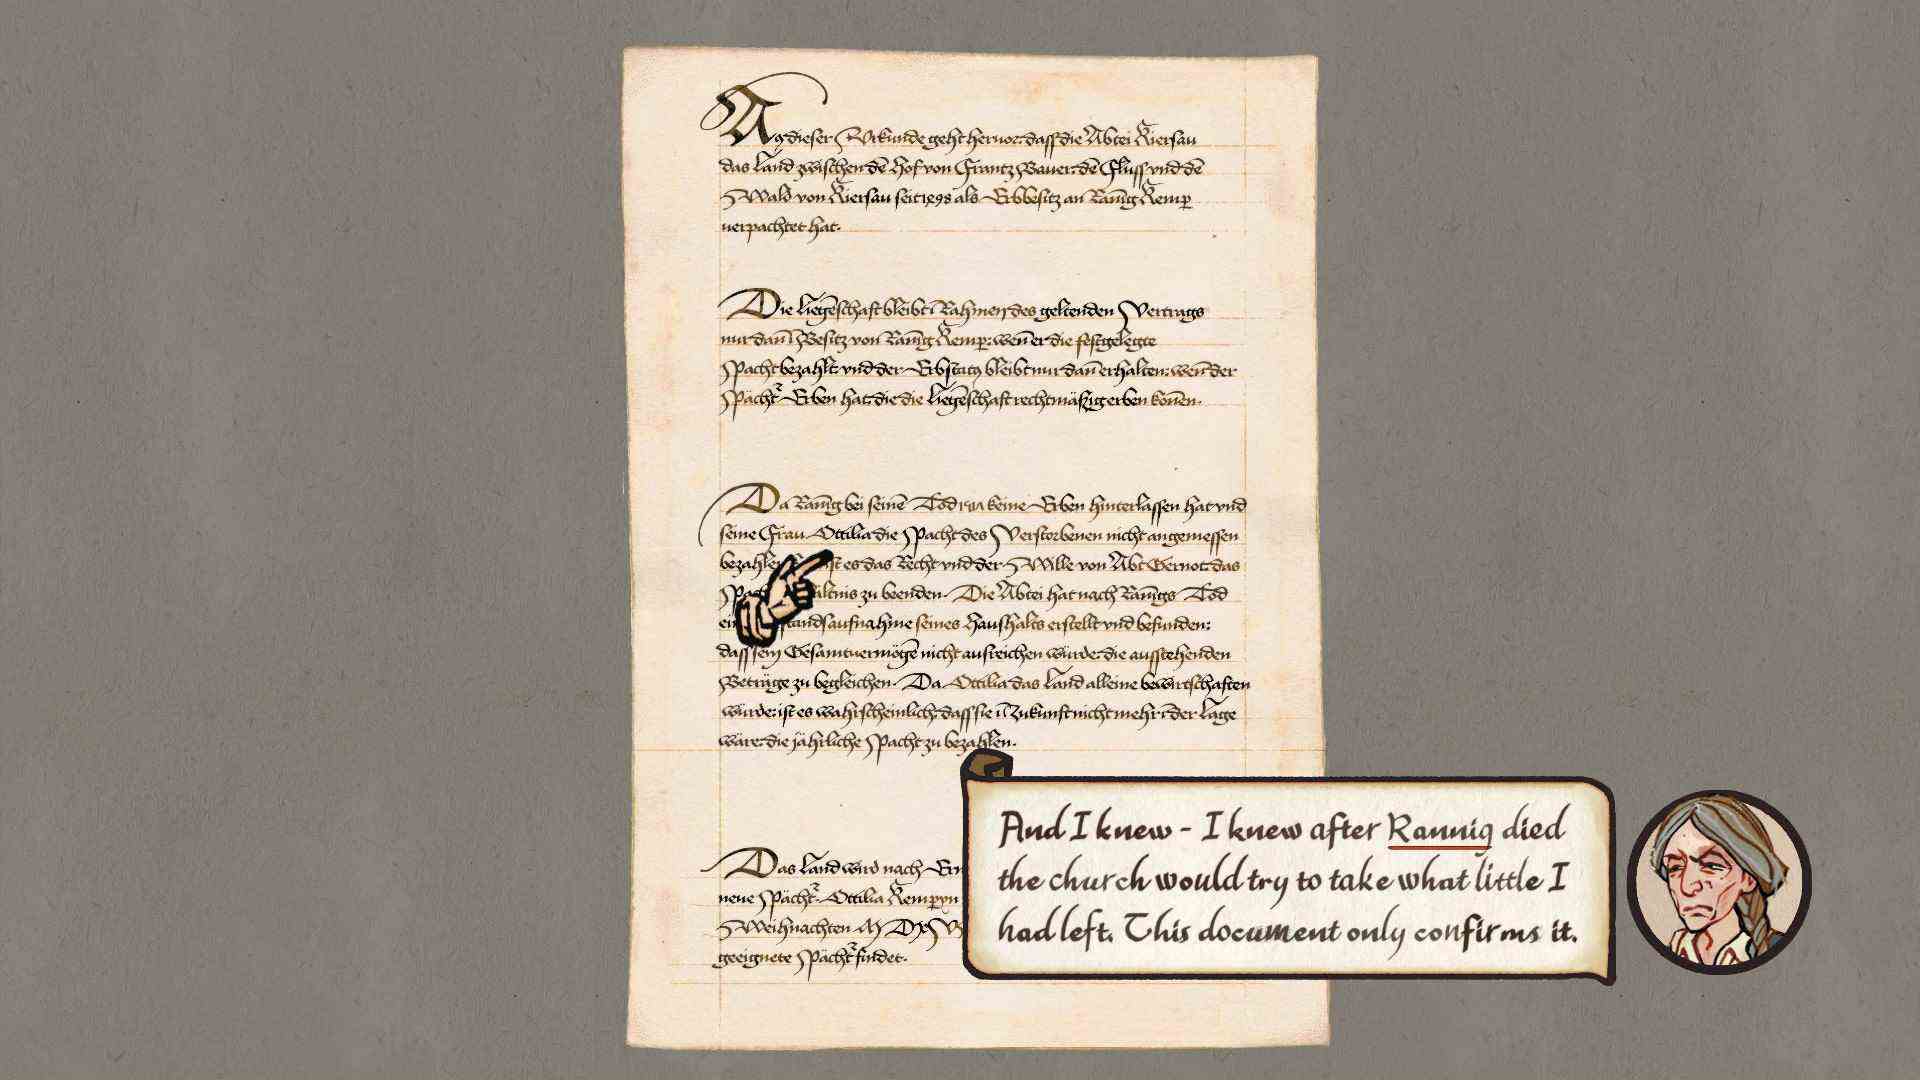 Aꝰ dieser Vrkunde geht heruor: dass die Abtei Kiersau
das Land zwischen dē Hof von Frantz Bauer: dē Fluss vnd dē
Wald von Kiersau seit 1498 als Erbbesitz an Rānig Kemp
verpachtet hat.
Die Liegēschaft bleibt ī Rahmen des geltenden Vertrags
nur dañ ī Besitz von Rānig Kemp: weñ er die festgelegte
Pacht bezahlt: vnd der Erbstatꝰ bleibt nur dañ erhalten: weñ der
Pächt Erben hat: die die Liegēschaft rechtmäßig erben köñen.
Da Rānig bei seinē Tod keine Erben hinterlassen hat vnd
seine Frau Ottilia die Pacht des Verstorbenen nicht angemessen
bezahlen ist es das Recht vnd der Wille von Abt Gernot: das
zu beenden. Die Abtei hat nach Rānigs Tod
seines Haushalts erstellt vnd befunden:
dass sein Gesamtvermögē nicht ausreichen würde: die ausstehenden
Beträge zu begleichen. Da Ottilia das Land alleine bewirtschaften
würde: ist es wahrscheinlich: dass sie ī Zukunft nicht mehr ī der Lage
wäre: die jährliche Pacht zu bezahlen.
Das Land wird nach
neue Pächt Ottilia Kemp
Weihnachten
geeignete Pächt findet.
And I knew - I knew after Rannig died
the church would try to take what little I
had left. This document only confirms it.